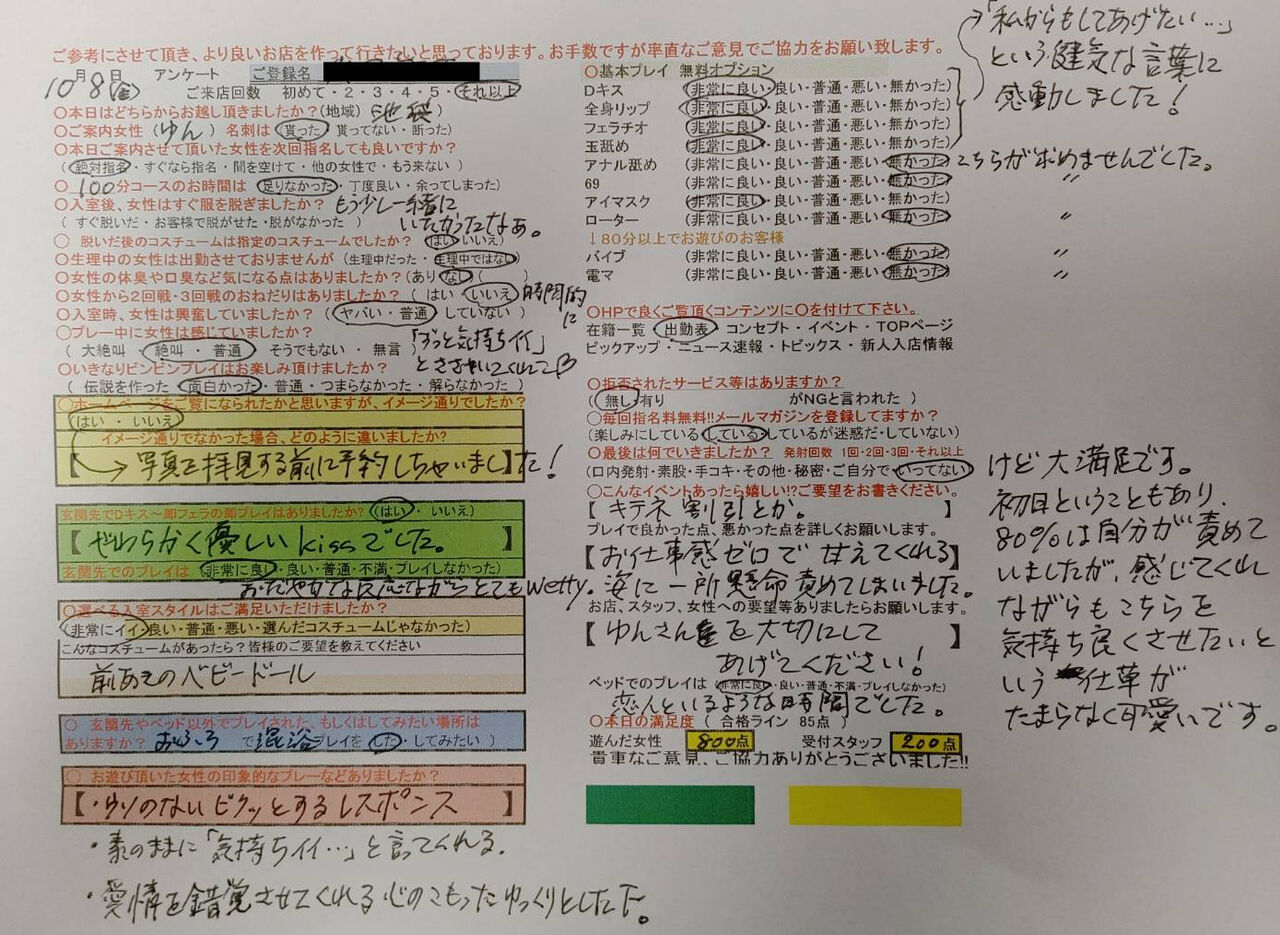 ご参考にさせて頂き、より良いお店を作って行きたいと思っております。お手数ですが率直なご意見でご協力をお願い致します。
10月8日(金) アンケート ご登録名
ご来店回数 初めて・2・3・4・5・それ以上
○本日はどちらからお越し頂きましたか?(地域) 池袋
○ご案内女性 (ゆん) 名刺は (貰った) 貰ってない・断った)
○本日ご案内させて頂いた女性を次回指名しても良いですか?
(絶対指名・すぐなら指名・間を空けて・他の女性で・もう来ない)
○ 100分コースのお時間は (足りなかった・丁度良い・余ってしまった)
○入室後、女性はすぐ服を脱ぎましたか? もう少し一緒に
(すぐ脱いだ・お客様で脱がせた・脱がなかった) いたかったなぁ。
○ 脱いだ後のコスチュームは指定のコスチュームでしたか? (はい・いいえ)
○生理中の女性は出勤させておりませんが (生理中だった・生理中ではない)
○女性の体臭や口臭など気になる点はありましたか?(あり・なし ( )
○女性から2回戦・3回戦のおねだりはありましたか? (はい・いいえ) 時間的に
○入室時、女性は興奮していましたか? (ヤバい・普通・していない)
○プレー中に女性は感じていましたか?
(大絶叫・絶叫・普通・そうでもない・無言) 「ずっと気持ちイイ」
とささやいてくれて
○いきなりビンビンプレイはお楽しみ頂けましたか?
(伝説を作った・面白かった・普通・つまらなかった・解らなかった)
○ホームページをご覧になられたかと思いますが、イメージ通りでしたか?
(はい・いいえ)
イメージ通りでなかった場合、どのように違いましたか?
【→写真を拝見する前に予約しちゃいまし】た!
玄関先でDキス〜即フェラの即プレイはありましたか? (はい・いいえ)
【やわらかく優しいkissでした。】
玄関先でのプレイは (非常に良い・良い・普通・不満・プレイしなかった)
おだやかな反応ながらとてもwetty.
○選べる入室スタイルはご満足いただけましたか?
(非常にイイ・良い・普通・悪い・選んだコスチュームじゃなかった)
こんなコスチュームがあったら?皆様のご要望を教えてください
前あきのベビードール
○ 玄関先やベッド以外でプレイされた、もしくはしてみたい場所は
ありますか? おふろ で混浴プレイを (した・してみたい)
○ お遊び頂いた女性の印象的なプレーなどありましたか?
【・ウソのないビクッとするレスポンス】
・素のままに「気持ちイイ…」と言ってくれる。
・愛情を錯覚させてくれる心のこもったゆっくりとした
○基本プレイ 無料オプション
Dキス (非常に良い・良い・普通・悪い・無かった)
全身リップ (非常に良い・良い・普通・悪い・無かった)
フェラチオ (非常に良い・良い・普通・悪い・無かった)
玉舐め (非常に良い・良い・普通・悪い・無かった)
「私からもしてあげたい…」
という健気な言葉に
感動しました!
アナル舐め (非常に良い・良い・普通・悪い・無かった) こちらが求めませんでした。
69 (非常に良い・良い・普通・悪い・無かった) 〃
アイマスク (非常に良い・良い・普通・悪い・無かった)
ローター (非常に良い・良い・普通・悪い・無かった) 〃
↓80分以上でお遊びのお客様
バイブ (非常に良い・良い・普通・悪い・無かった) 〃
電マ (非常に良い・良い・普通・悪い・無かった) 〃
○HPで良くご覧頂くコンテンツに○を付けて下さい。
在籍一覧 (出勤表) コンセプト・イベント・TOPページ
ピックアップ・ニュース速報・トピックス・新人入店情報
○拒否されたサービス等はありますか?
(無し・有り がNGと言われた )
○毎回指名料無料!!メールマガジンを登録してますか?
(楽しみにしている・している・しているが迷惑だ・していない)
○最後は何でいきましたか? 発射回数 1回・2回・3回・それ以上
(口内発射・素股・手コキ・その他・秘密・ご自分で・いってない)
けど大満足です。
初日ということもあり、
80%は自分が責めて
いましたが、感じてくれ
ながらもこちらを
気持ち良くさせたいと
いう仕草が
たまらなく可愛いです。
○こんなイベントあったら嬉しい!?ご要望をお書きください。
【 キテネ割引とか。 】
プレイで良かった点、悪かった点を詳しくお願いします。
【お仕事感ゼロで甘えてくれる】
姿に一所懸命責めてしまいました。
お店、スタッフ、女性への要望等ありましたらお願いします。
【ゆんさんを大切にして 】
あげてください!
ベッドでのプレイは (非常に良い・良い・普通・不満・プレイしなかった)
恋人といるような時間でした。
○本日の満足度 (合格ライン 85点)
遊んだ女性 800点 受付スタッフ 200点
貴重なご意見、ご協力ありがとうございました!!